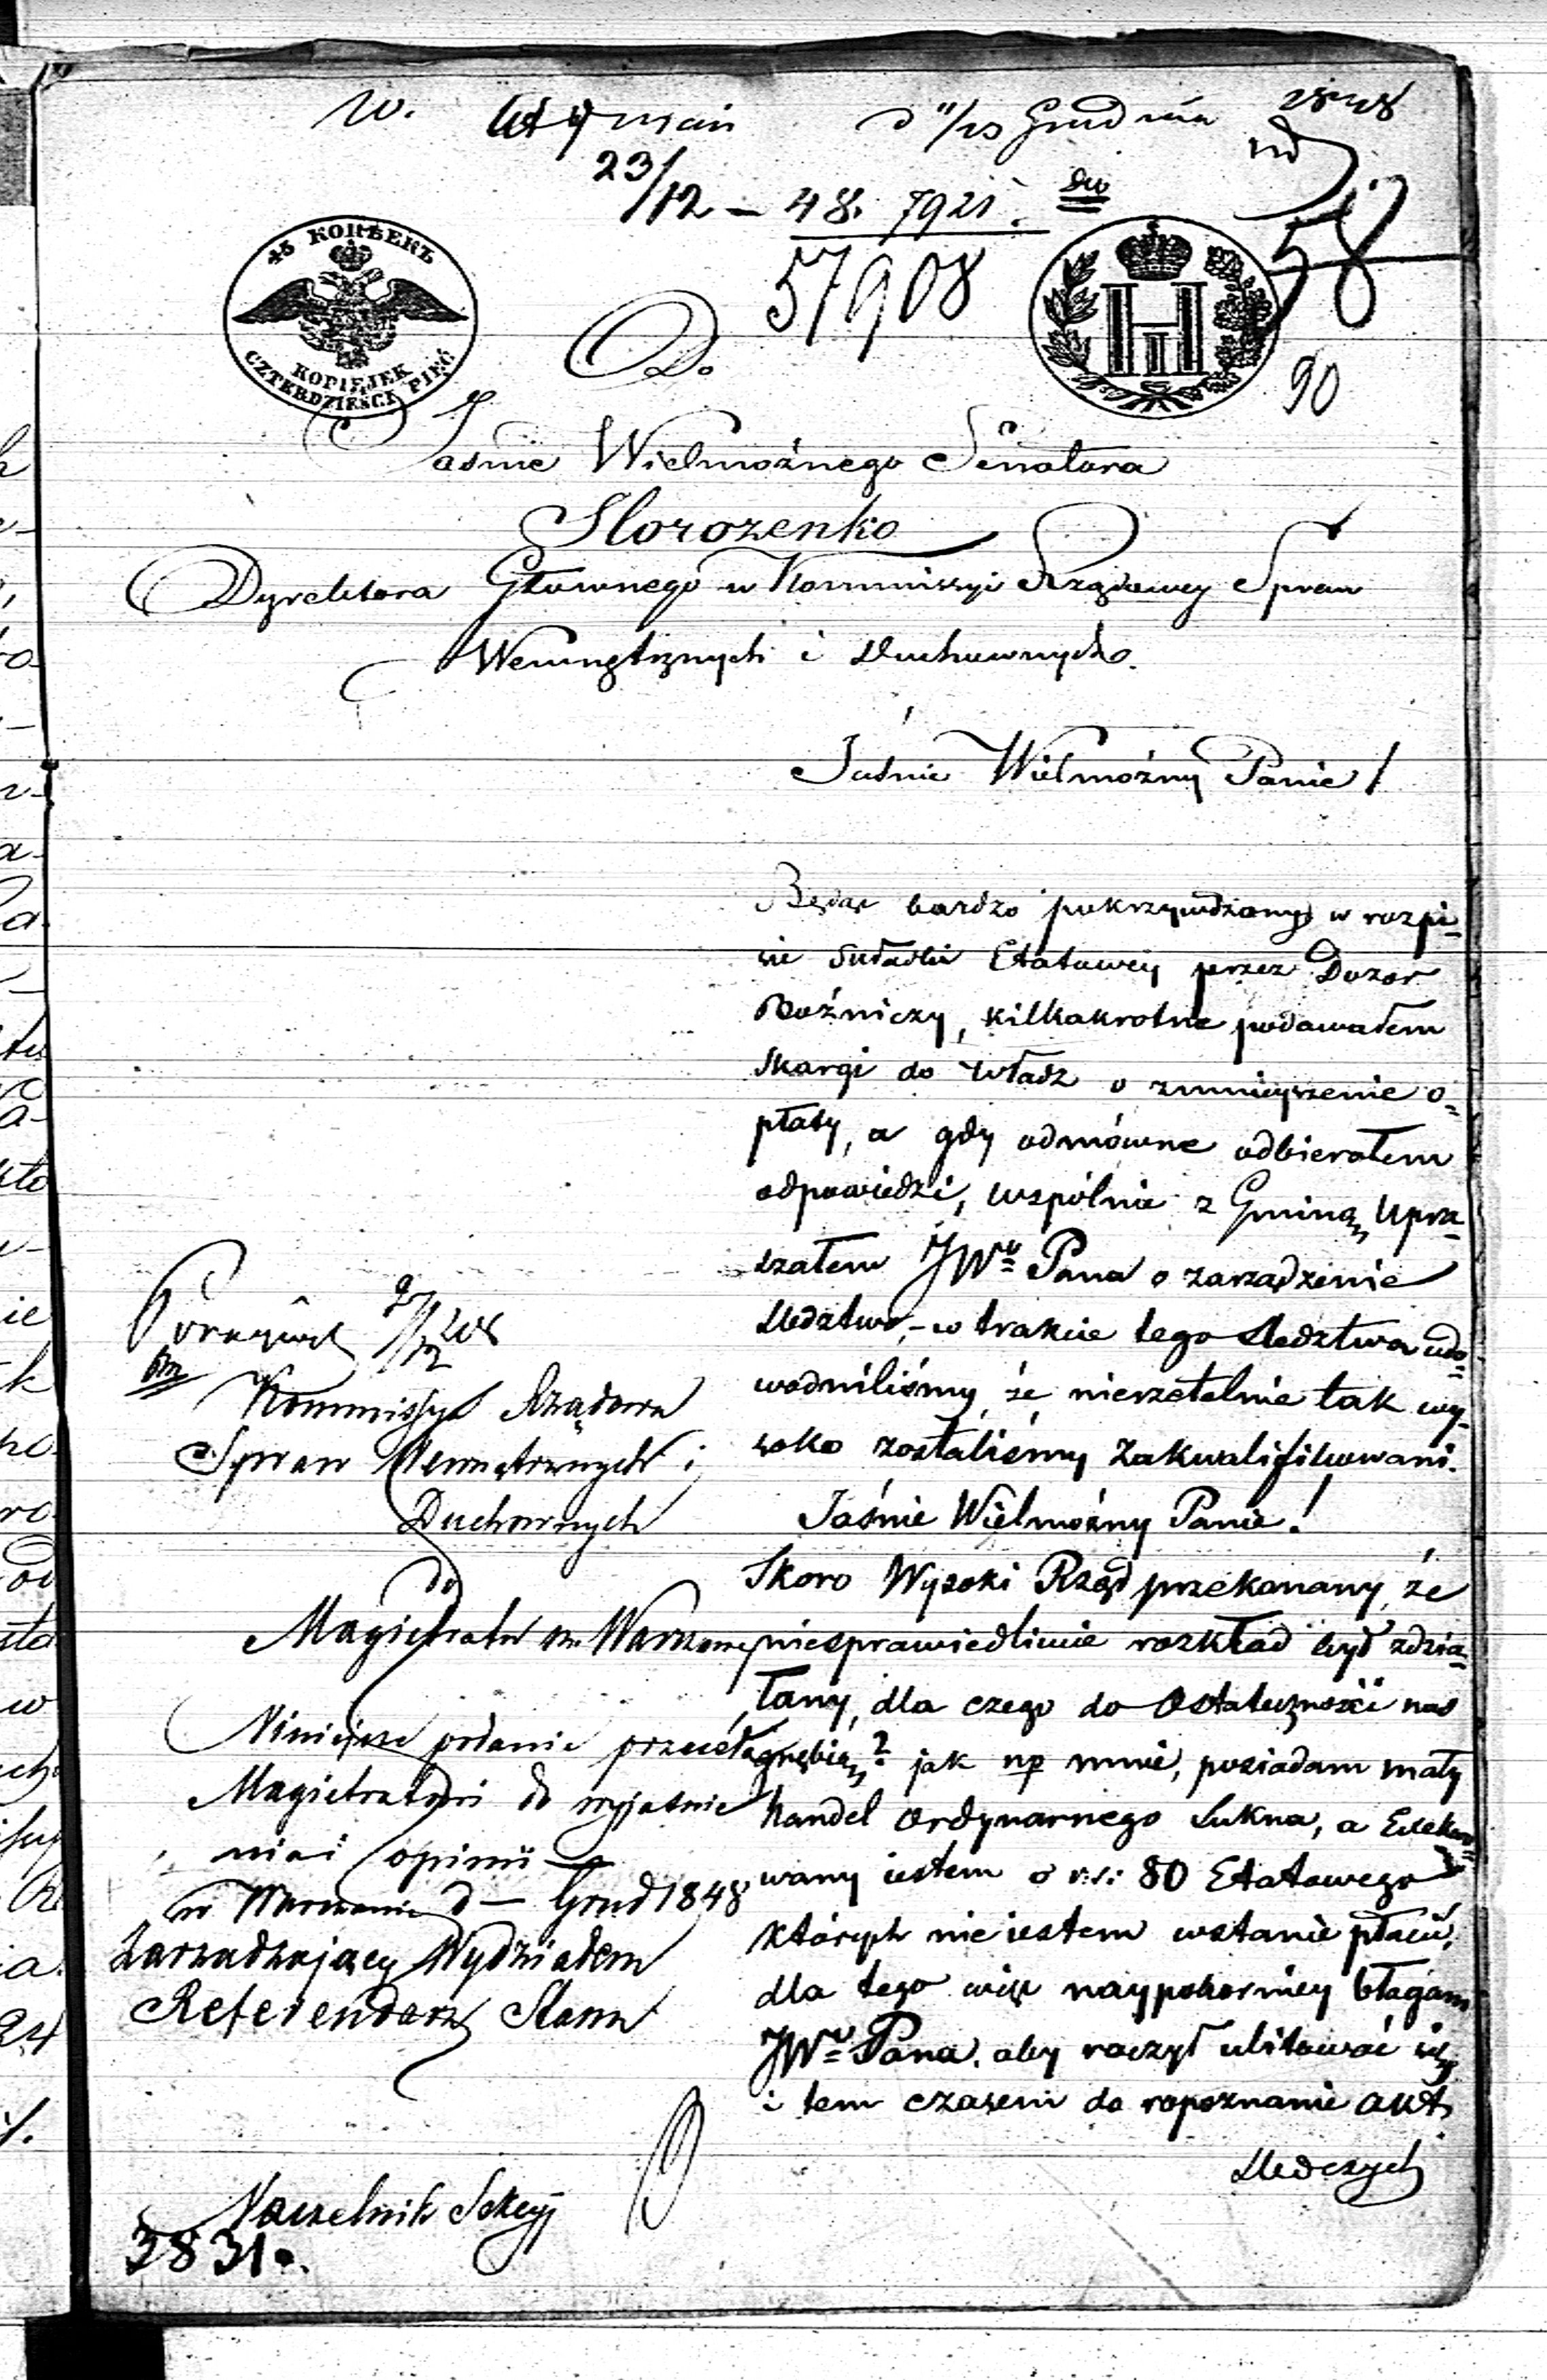 W. d 11/23 Grudnia 1848
23/12 – 48. 7921.
57908
58
90
45 КОПѢЕКЪ
KOPIEJEK
CZTERDZIEŚCI PIĘĆ
Do
Jaśnie Wielmożnego Senatora
Storozenko
Dyrektora Głownego w Kommissyi Rządowey Spraw
Wewnętrznych i Duchownych.
Jaśnie Wielmożny Panie!
Będąc bardzo pokrzywdzony w rozpi-
sie Składki Etatowey przez Dozor
Bożniczy, kilkakrotne podawałem
Skargi do Władz o zmnieyszenie o=
płaty, a gdy odmówne odbierałem
odpowiedzi, wspólnie z Gminą, upra-
szałem JWo Pana o zarządzenie
śledztwa, – w trakcie tego śledztwa udo=
wodniliśmy, że nierzetelnie tak wy-
soko zostaliśmy zakwalifikowani.
Jaśnie Wielmożny Panie!
Skoro Wysoki Rząd przekonany, że
niesprawiedliwie rozkład był zdzia-
łany, dla czego do Ostateczności nas
gnębią? jak np mnie, posiadam mały
handel Ordynarnego Sukna, a Exekwo=
wany iestem o rs: 80 Etatowego
których nie iestem wstanie płacić,
dla tego więc naypokorniey błagam
JWo Pana, aby raczył ulitować się
i tem czasem do rozpoznanie akt
śledczych
Kommissya Rządowa
Spraw Wewnętrznych i
Duchownych
do
Magistratu m. Warszawy
Ninieysze podanie przesyła
Magistratowi do wyjaśnie
nia i opinii
w Warszawie d – Grud 1848
Zarządzający Wydziałem
Referendarz Stanu
Naczelnik Sekcyi
3831.